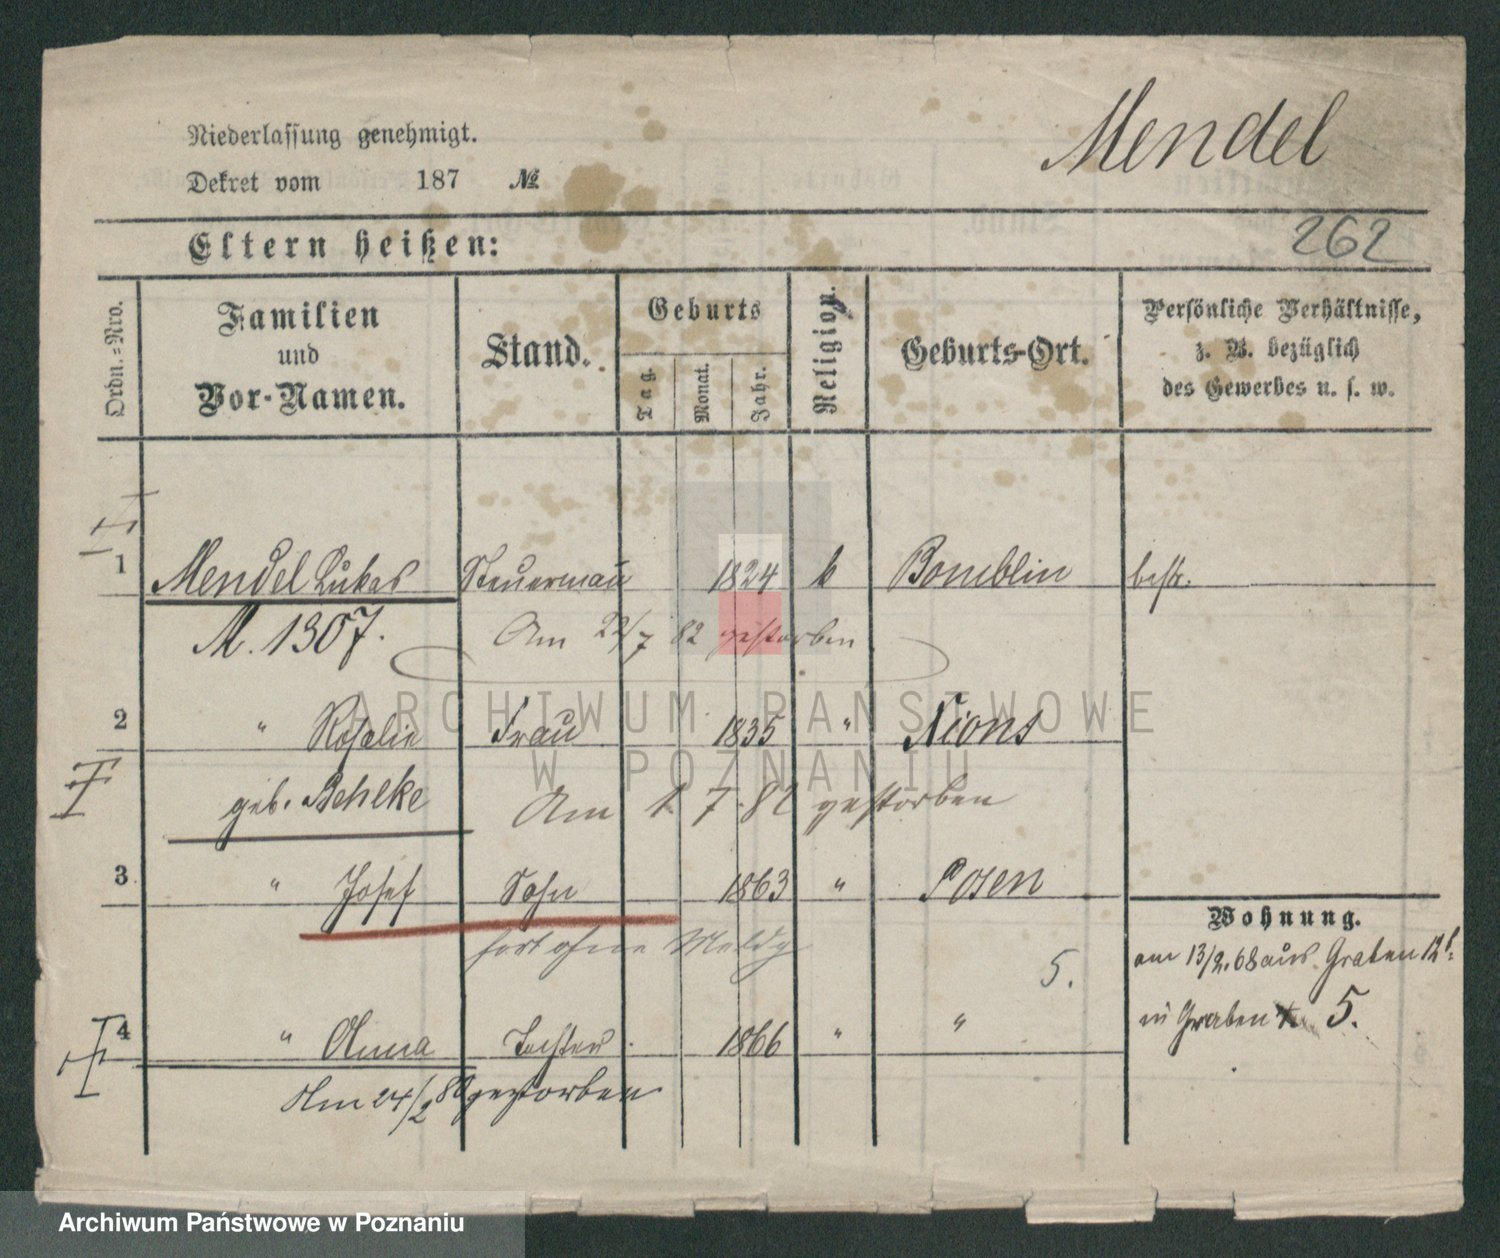 Mendel
Niederlassung genehmigt.
Dekret vom 187 №
262
Eltern heißen:
Ordn.=Nro.
Familien
und
Vor-Namen.
Stand.
Geburts
Tag.
Monat.
Jahr.
Religion.
Geburts-Ort.
Persönliche Verhältnisse,
z. B. bezüglich
des Gewerbes u. s. w.
1 Mendel Lukas Steuermann 1824 k Bomblin bestr.
M. 1307. Am 22/7 82 gestorben
ARCHIWUM PAŃSTWOWE
W POZNANIU
2 " Rosalie Frau 1835 " Xions
geb. Behlke Am 1. 7. 82 gestorben
3 " Josef Sohn 1863 " Posen
fort ohne Meldg
Wohnung.
am 13/2.68 aus Graben 12b
5.
in Graben 5.
4 " Anna Tochter. 1866 " "
Am 24/2 80 gestorben
Archiwum Państwowe w Poznaniu